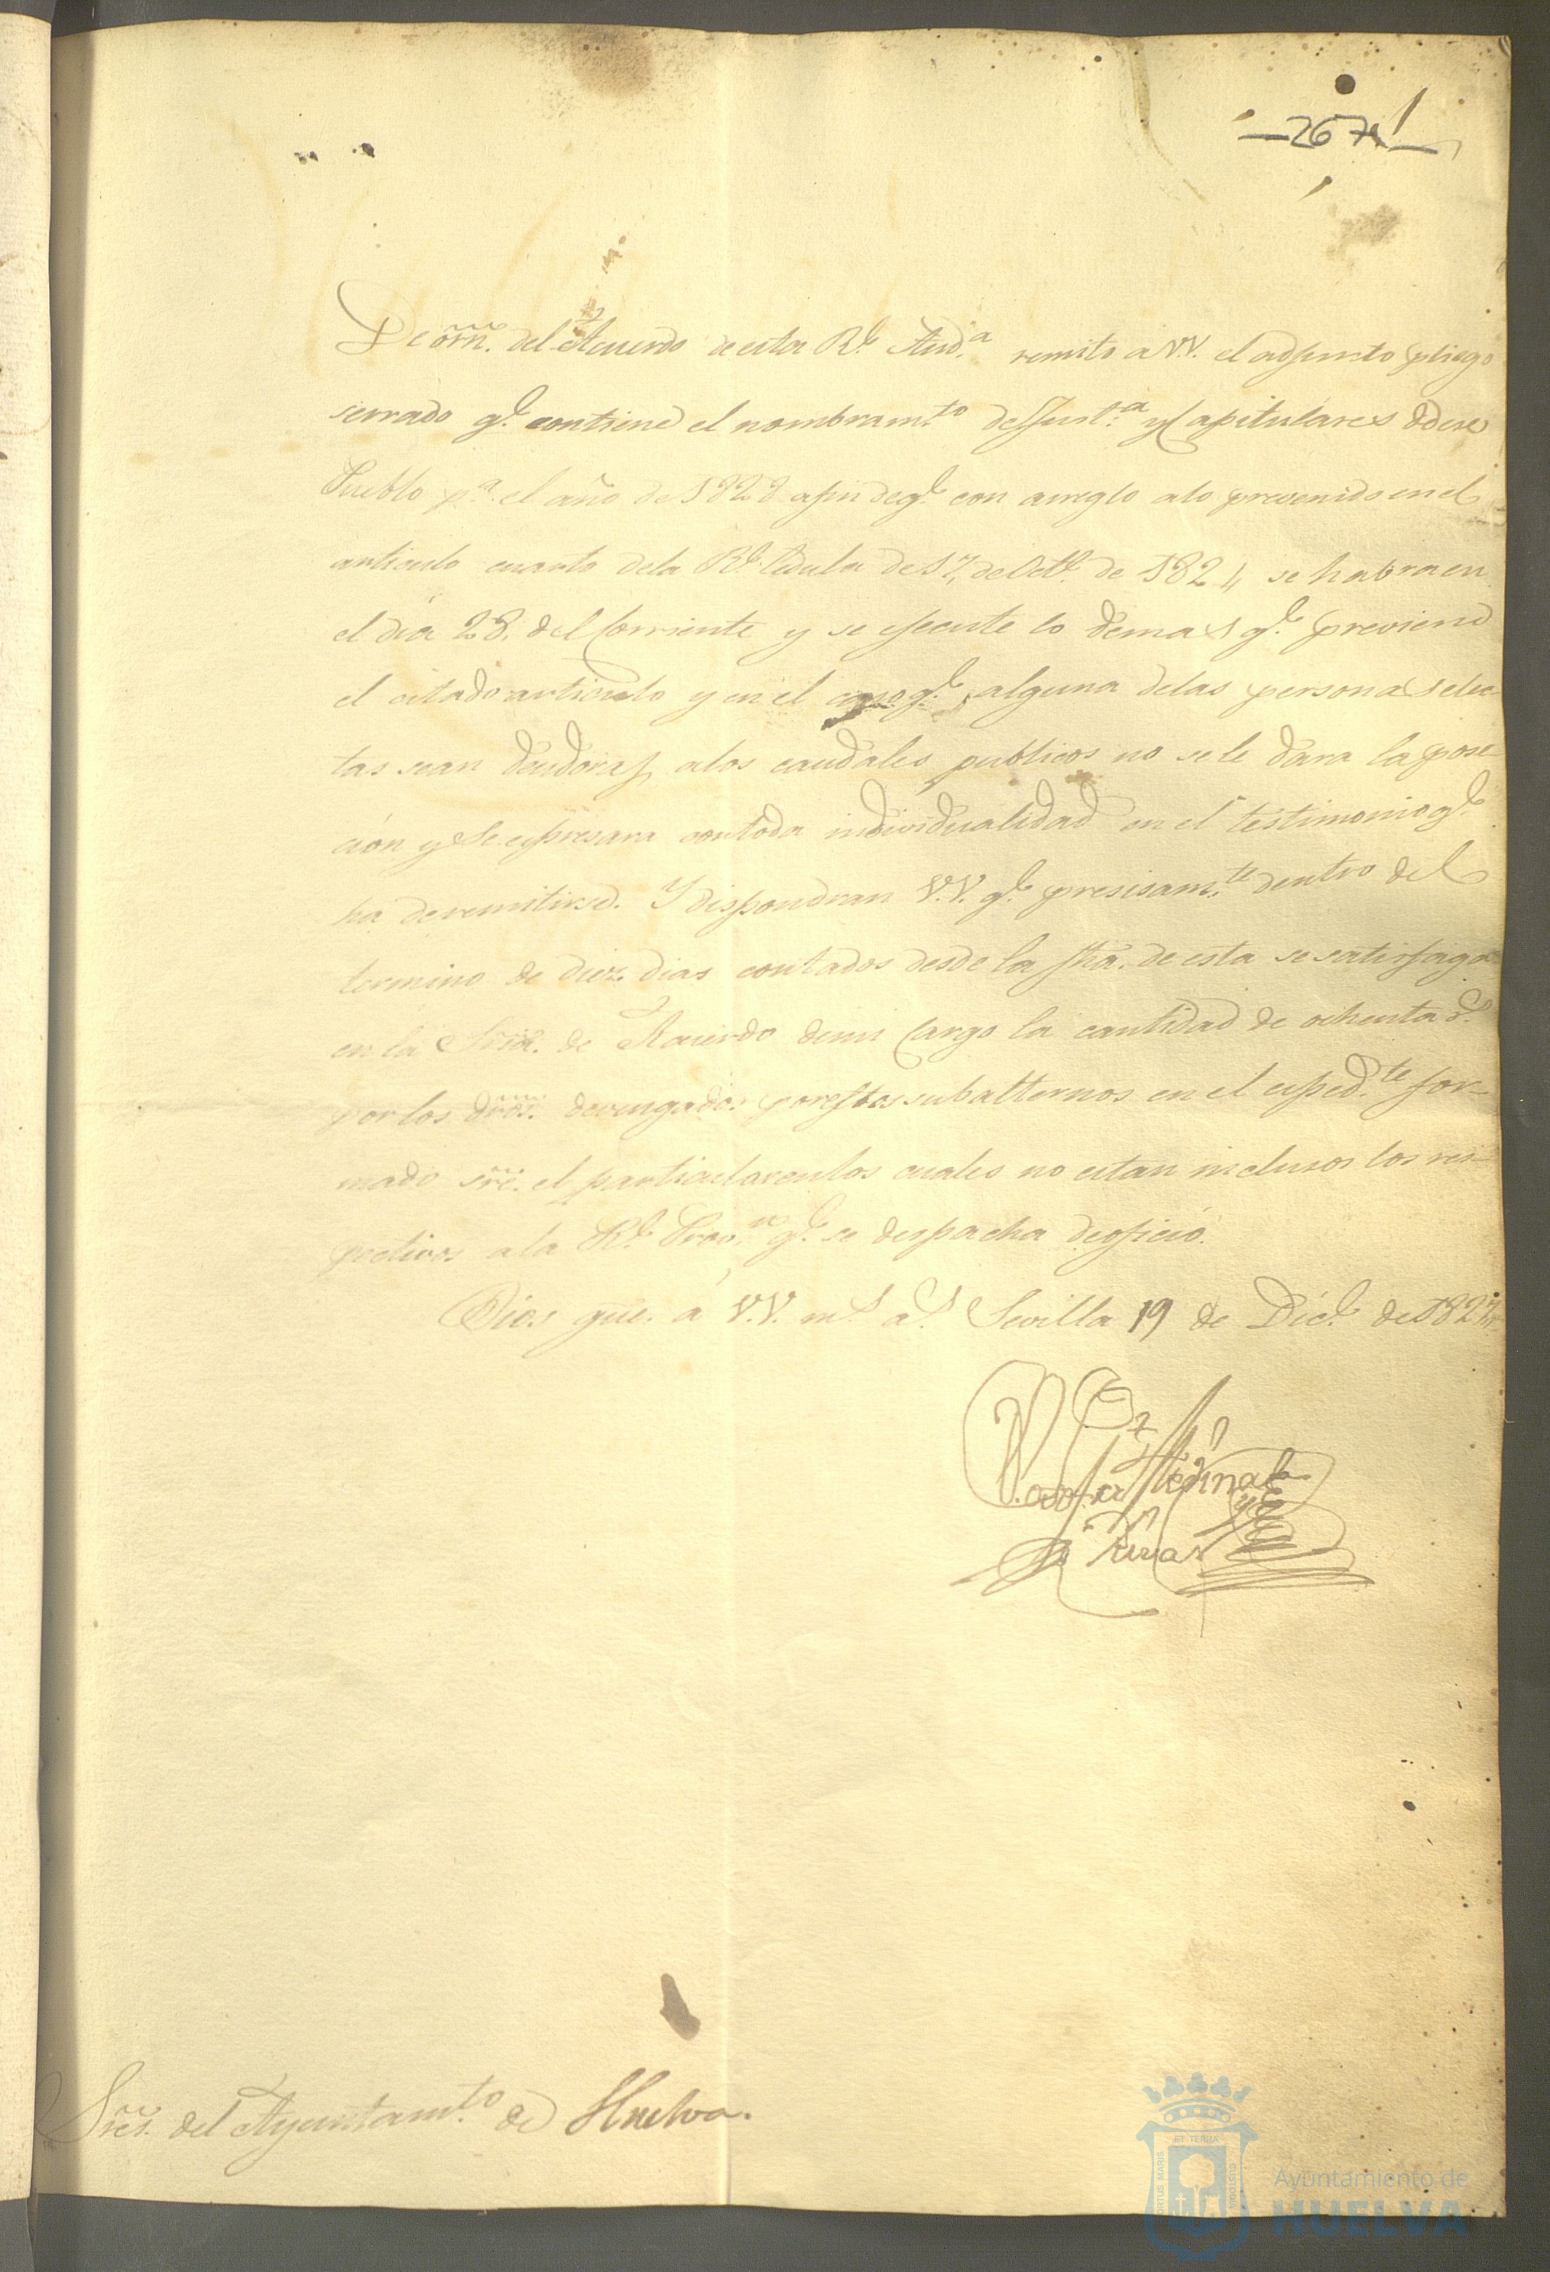 267
De orñ. del Acuerdo de esta Rl. Aud.a remito a V.V. el adjunto pliego
serrado qe. contiene el nombram.to de Just.a y Capitulares de ese
Pueblo p.a el año de 1828 afin de qe. con arreglo alo prevenido en el
articulo cuarto dela Rl. Cedula de 17, de Octe. de 1824, se habra en
el dia 28, del Corriente y se ejecute lo demas qe. previene
el citado articulo y en el caso qe. alguna delas personas elec-
tas sean deudoras alos caudales publicos no se le dara la pose-
cion y se espresara con toda individualidad en el testimonio qe.
ha de remitirse. Y dispondran V.V. qe. presisam.te dentro del
termino de diez dias contados desde la fha. de esta se satisfaga
en la Sria. de Acuerdo demi Cargo la cantidad de ochenta rs.
por los dros. devengados por estos subalternos en el esped.te for-
mado sre. el particular en los cuales no estan inclusos los res-
pectivos ala Rl. Prov.on qe. se despacha de oficio.
Dios gue. á V.V. ms. as. Sevilla 19 de Dice. de 1827,
Medina
y Rivas
Sres. del Ayuntam.to de Huelva.
PORTUS MARIS ET TERRAE CUSTODIA
Ayuntamiento de
HUELVA